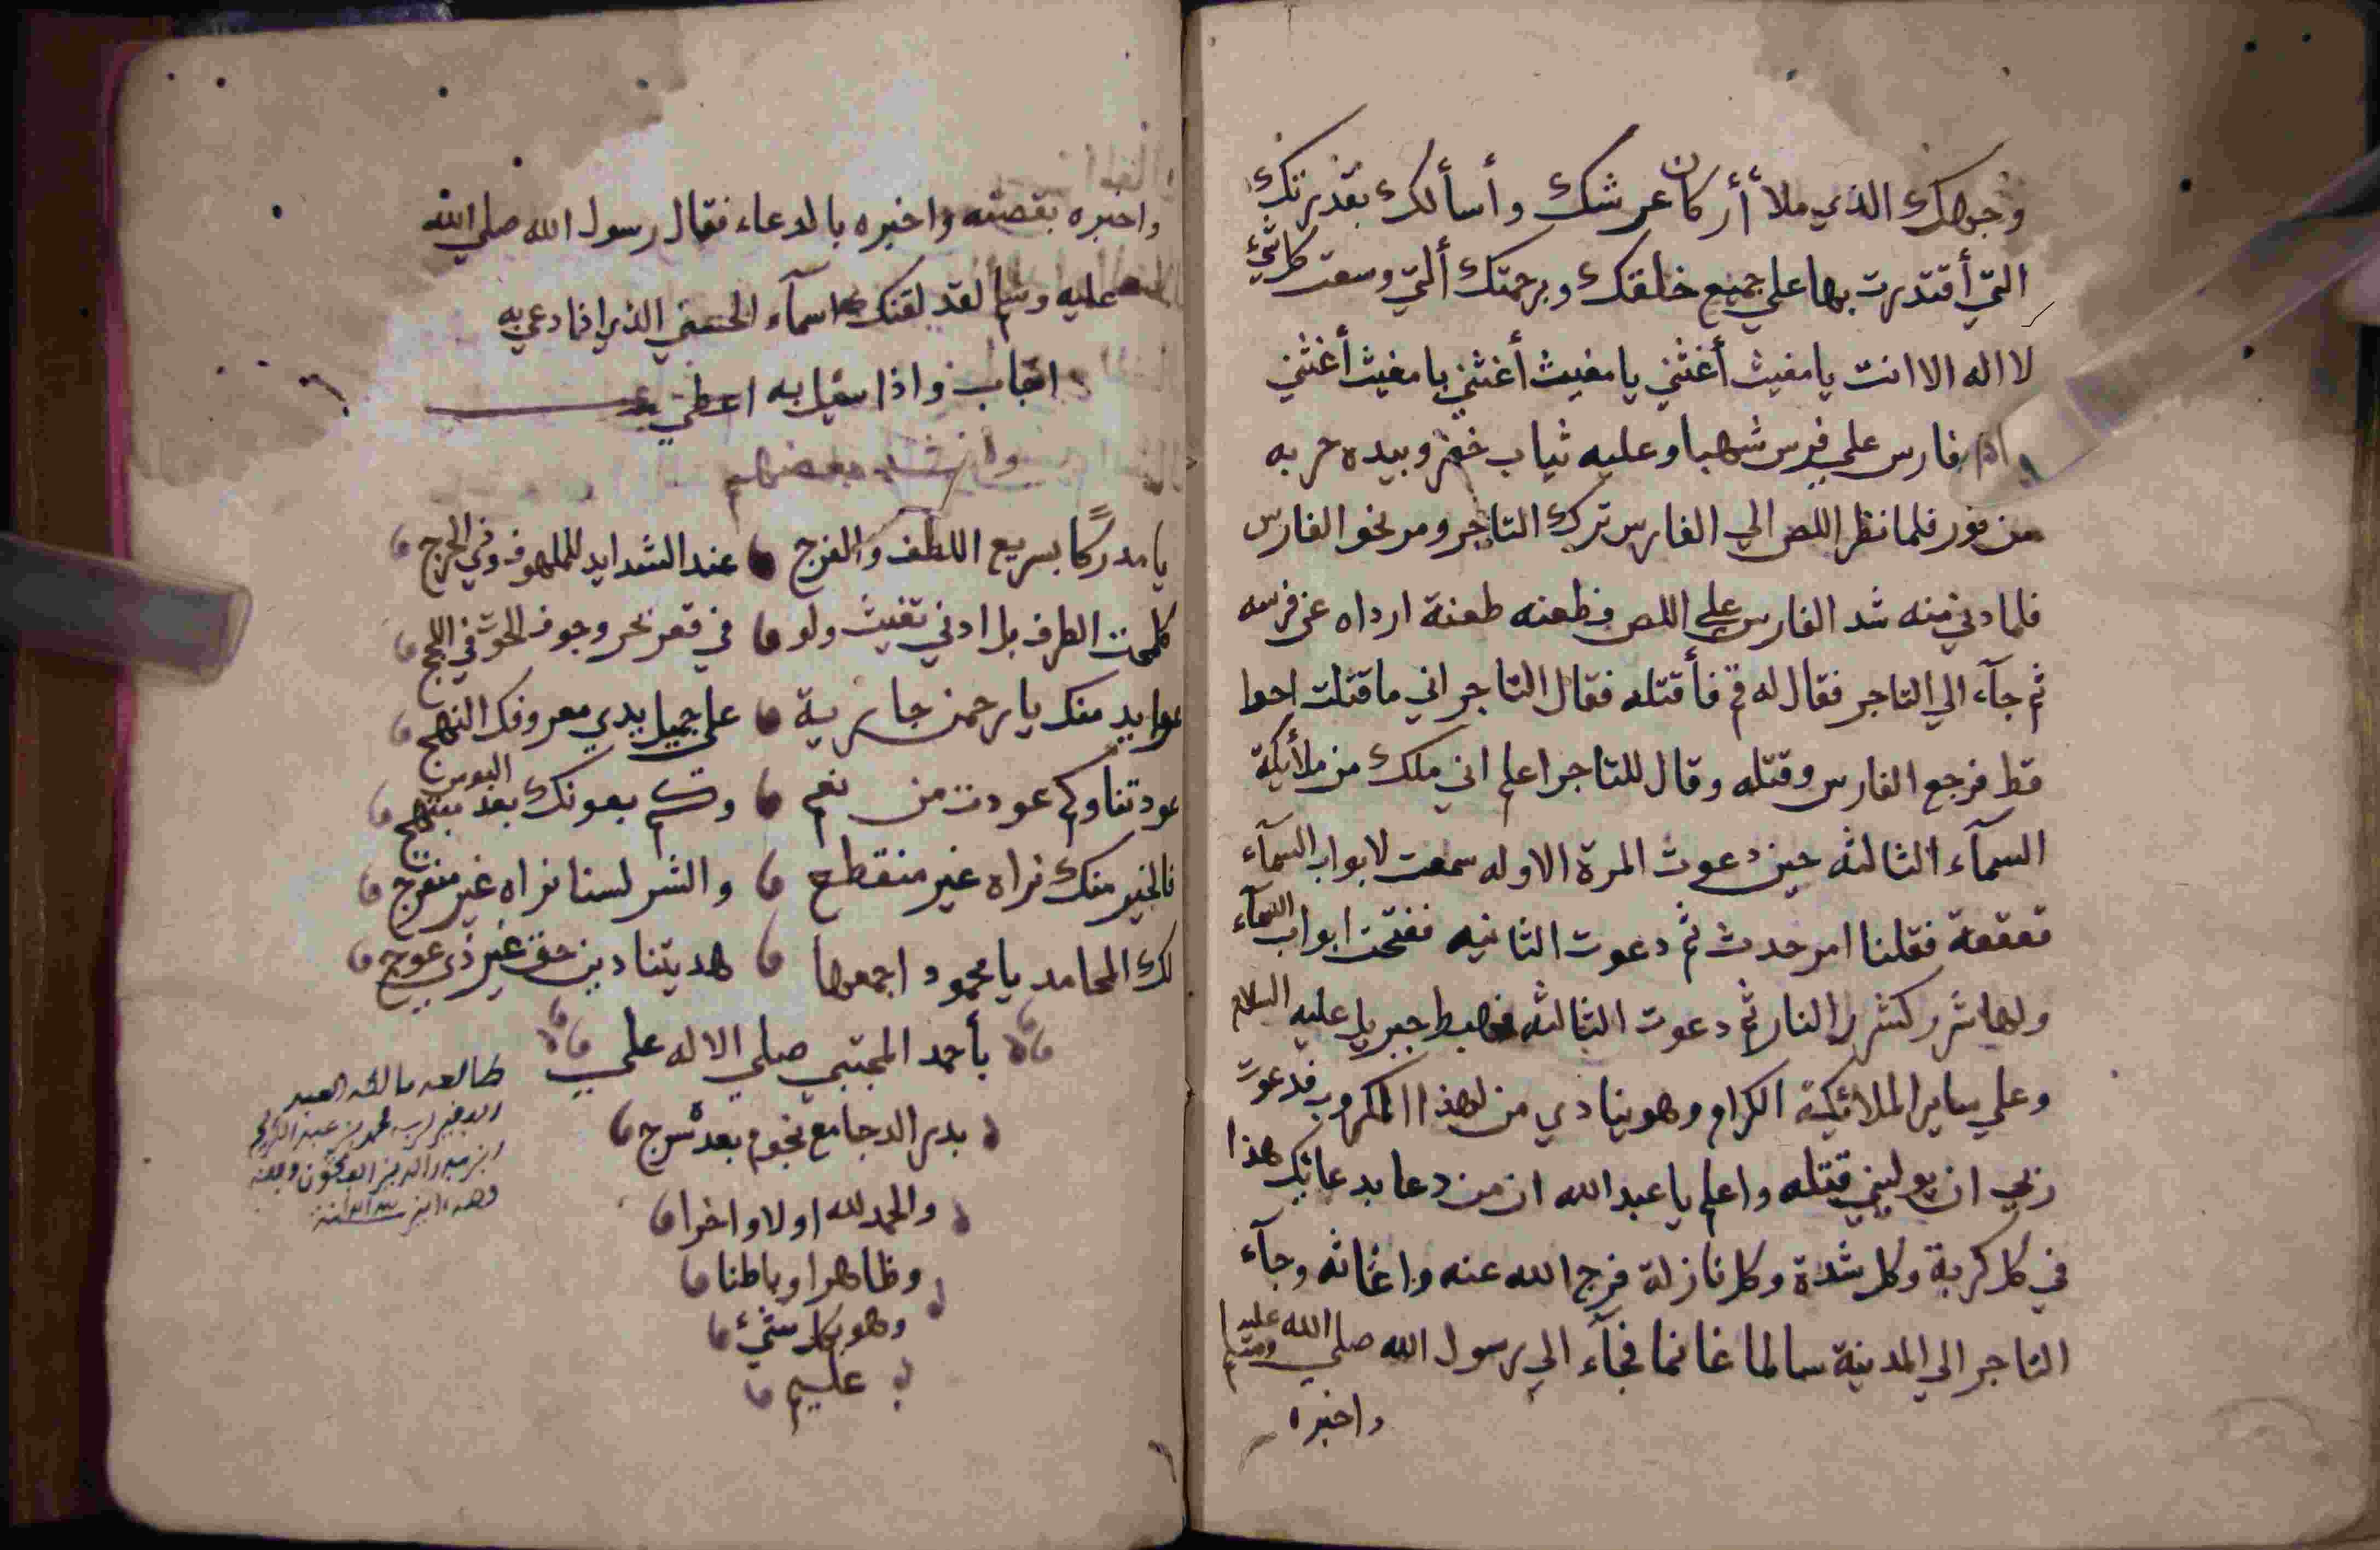 وجهك الذي ملأ أركان عرشك وأسألك بقدرتك
التي أقتدرت بها علي جميع خلقك وبرحمتك ألتي وسعت كل شيء
لا اله الا انت يا مغيث أغثني يا مغيث أغثني يا مغيث أغثني
واذا بفارس علي فرس شهبا وعليه ثياب خضر وبيده حربه
من نور فلما نظر اللص الي الفارس ترك التاجر ومر نحو الفارس
فلما دني منه شد الفارس علي اللص فطعنه طعنة ارداه عن فرسه
ثم جآء الي التاجر فقال له قم فأقتله فقال التاجر اني ما قتلت احدا
قط فرجع الفارس وقتله وقال للتاجر اعلم اني ملك من ملأئكة
السمآء الثالثه حين دعوت المرة الاوله سمعت لابواب السمآء
قعقعة فقلنا امر حدث ثم دعوت الثانيه ففتحت ابواب السمآء
ولها شرر كشرر النار ثم دعوت الثالثه فهبط جبريل عليه السلام
وعلي ساير الملائكة الكرام وهو ينادي من لهذا المكروب فدعوت
ربي ان يوليني قتله واعلم يا عبد الله ان من دعا بدعائك هذا
في كل كربة وكل شدة وكل نازلة فرج الله عنه واغاثه وجآء
التاجر الي المدينة سالما غانما فجآء الي رسول الله صلي الله عليه وسلم
واخبره
واخبره بقصته واخبره بالدعاء فقال رسول الله صلي الله
عليه وسلم لقد لقنك اسمآء الحسني الذي اذا دعي به
اجاب واذا سئل به اعطي
وانشد بعضهم
يا مدركًا بسريع اللطف والفرج عند الشدايد للملهوف وفي الحرج
كلمحت الطرف بل ادني تغيث ولو في قعر بحر وجوف الحوت في اللجج
عوايد منك يا رحمن جارية علي جميل يدي معروفك النهج
عودتنا وكم عودت من نعم وكم بعونك بعد البوس مبتهج
فالخير منك نراه غير منقطع والشر لسنا نراه غير منفرج
لك المحامد يا محمود اجمعها هديتنا دين حق غير ذي عوج
بأحمد المجتبي صلي الاله علي
بدر الدجا مع نجوم بعده سرج
والحمد لله اولا واخرا
وظاهرا وباطنا
وهو بكل شيء
عليم
طالعه مالكه العبد
الفقير محمد بن عبد الكريم